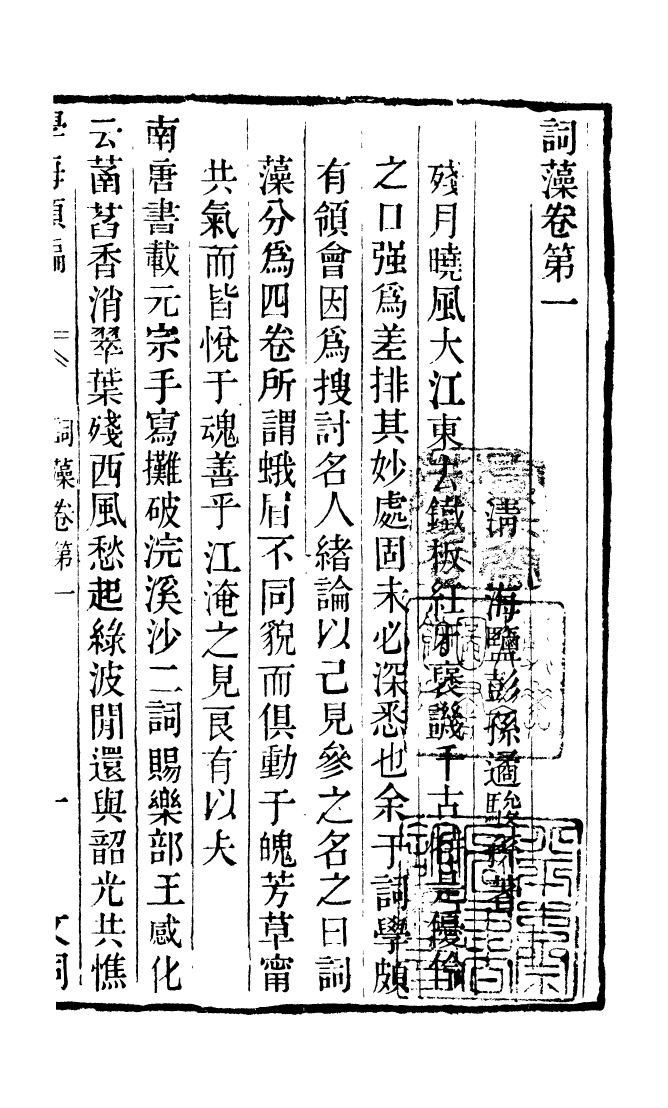 詞藻卷第一
清 海鹽彭孫遹駿孫著
殘月曉風大江東去鐵板紅牙襃譏千古同是優伶
之口强爲差排其妙處固未必深悉也余于詞學頗
有領會因爲搜討名人緒論以己見參之名之曰詞
藻分爲四卷所謂蛾眉不同貌而俱動于魄芳草甯
共氣而皆悅于魂善乎江淹之見良有以夫
南唐書載元宗手寫攤破浣溪沙二詞賜樂部王感化
云菡萏香消翠葉殘西風愁起綠波閒還與韶光共憔
學海類編 詞藻卷第一 一 文詞